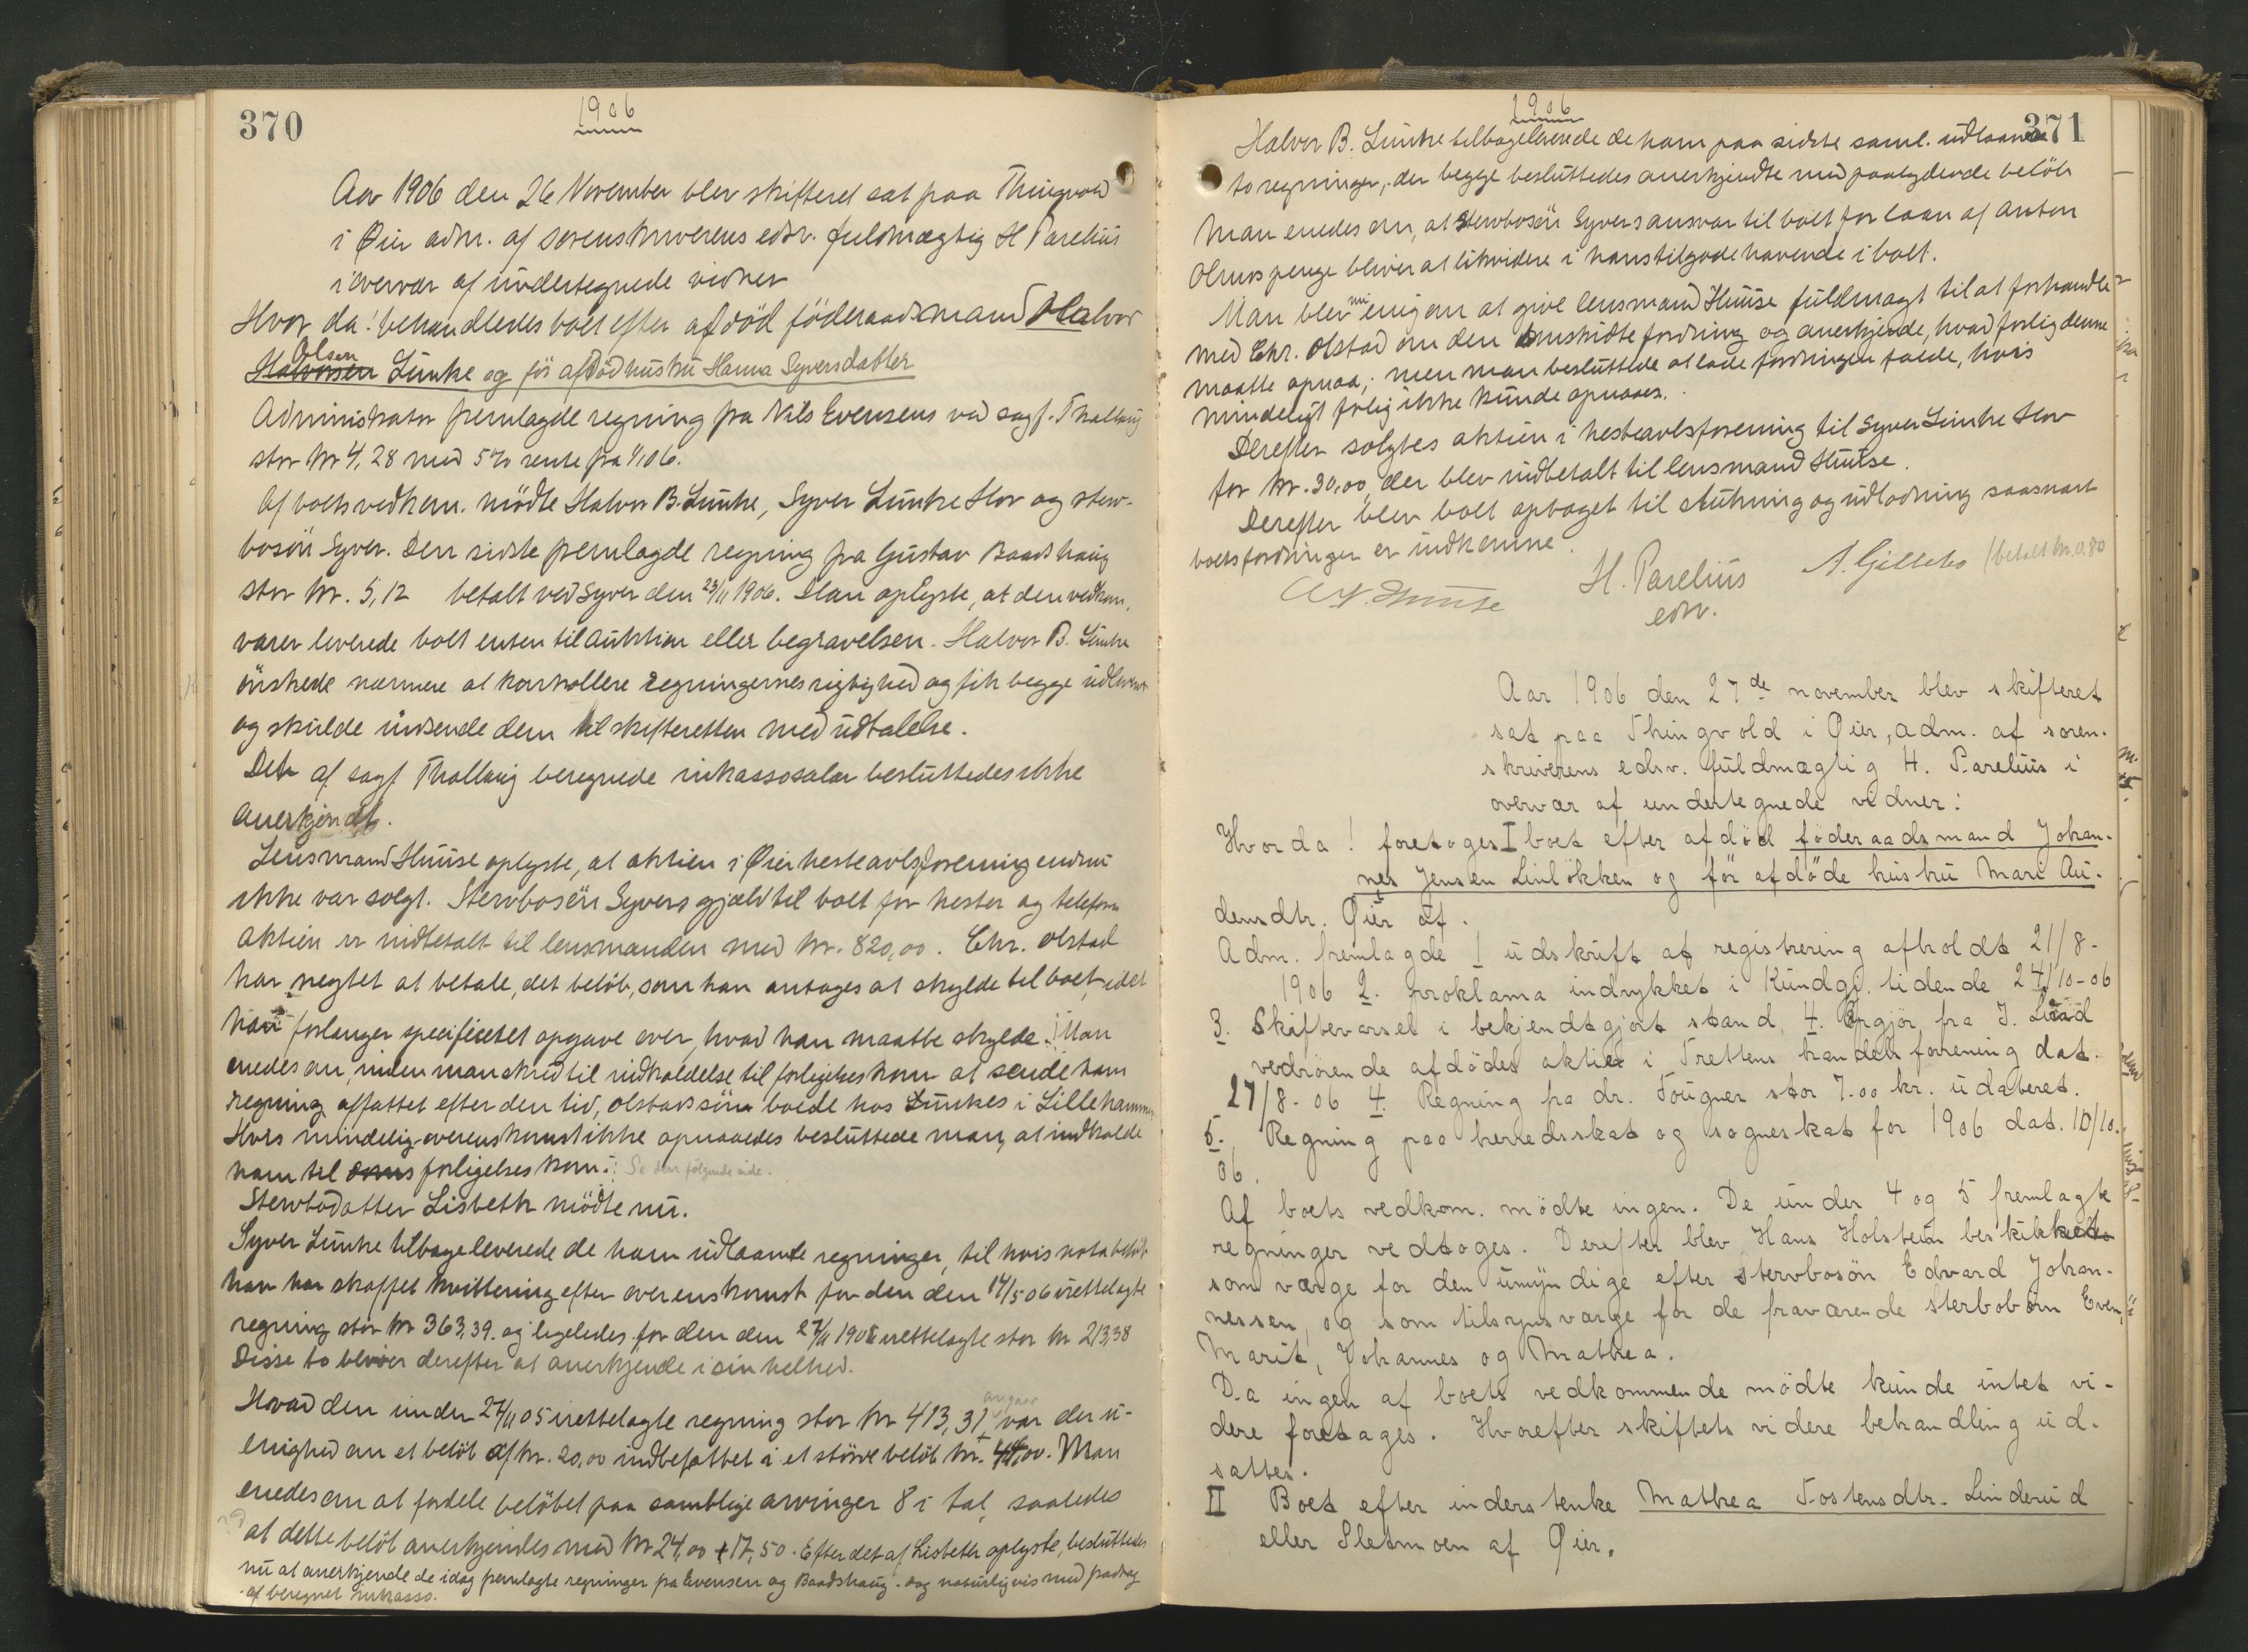 370
1906
Aar 1906 den 26 November blev skifteret sat paa Thingvold
i Øier adm. af sorenskriverens edsv. fuldmægtig H Parelius
i overvær af undertegnede vidner
Hvor da! behandledes boet efter afdöd föderaadsmand Halvor
Olsen
Halvorsen Lunke og før afdöd hustru Hanna Syversdatter
Administrator fremlagde regning fra Nils Evensens ved sagf. Thallaug
stor kr 4,28 med 5% rente fra
Af boets vedkom. mödte Halvor B. Lunke, Syver Lunke Slov og sterv-
bosön Syver. Den sidste fremlagde regning fra Gustav Baadshaug
stor kr. 5,12 betalt ved Syver den 23/11 1906. Man oplyste, at den vedkom.
varer leverede boet enten til auktion eller begravelsen. Halvor B. Lunke
önskede nærmere at kontrollere regningernes rigtighed og fik begge udleveret
og skulde indsende dem til skifteretten med udtalelse.
Det af sagf Thallaug beregnede inkassosalær besluttedes ikke
anerkjendt.
Lensmand Huuse oplyste, at aktien i Øier hesteavlsforening endnu
ikke var solgt. Stervbosön Syvers gjæld til boet for hester og telefon
aktien er indbetalt til lensmanden med kr. 820,00. Chr. Olstad
har negtet at betale, det belöb, som han antages at skylde til boet, idet
han forlanger specificeret opgave over, hvad han maatte skylde. Man
enedes om, inden man skred til indkaldelse til forligelseskom. at sende ham
regning affattet efter den tid, Olstads sön boede hos Lunkes i Lillehammer.
Hvis mindelig overenskomst ikke opnaaedes besluttede man, at indkalde
ham til forligelseskom. Se den følgende side.
Stervbodatter Lisbeth mödte nu.
Syver Lunke tilbageleverede de ham udlaante regninger, til hvis nota belöb
han har skaffet kvittering efter overenskomst for den den 14/5 06 irettelagte
regning stor kr 363,39. og ligeledes for den den 27/11 1905 irettelagte stor kr 213,38
Disse to bliver derefter at anerkjende i sin helhed.
angaar
Hvad den under 27/11 05 irettelagte regning stor kr 413,31 var der u-
enighed om et belöb af kr. 20,00 indbefattet i et större belöb kr. 44,00. Man
enedes om at fordele belöbet paa samtlige arvinger 8 i tal, saaledes
at dette belöb anerkjendes med kr 24,00 + 17,50. Efter det af Lisbeth oplyste, besluttedes
nu at anerkjende de idag fremlagte regninger fra Evensen og Baadshaug. dog naturligvis med fradrag
af beregnet inkasso.
1906
371
Halvor B. Lunke tilbageleverede de ham paa sidste saml. udlaante
to regninger, der begge besluttedes anerkjendte med paalydende belöb
Man enedes om, at stervbosön Syvers ansvar til boet for laan af Anton
Olmos penge bliver at likvidere i hans tilgodehavende i boet.
nu
Man blev enig om at give lensmand Huuse fuldmagt til at forhandle
med Chr. Olstad om den omskidte fordring og anerkjende, hvad forlig denne
maatte opnaa; men man besluttede at lade fordringen falde, hvis
mindeligt forlig ikke kunde opnaaes.
Derefter solgtes aktien i hesteavlsforening til Syver Lunke Slov
for kr. 30,00, der blev indbetalt til lensmand Huuse.
Derefter blev boet optaget til slutning og udlodning saasnart
boets fordringer er indkomne.
Huuse H. Parelius A. Gillebo /betalt kr. 0.80
edsv.
Aar 1906 den 27de november blev skifteret
sat paa Thingvold i Øier, adm. af soren-
skriverens edsv. fuldmægtig H. Parelius i
overvær af undertegnede vidner:
Hvor da! foretoges I boet efter afdöd föderaadsmand Johan-
nes Jensen Linlökken og för afdöde hustru Mari Au-
densdtr. Øier af.
Adm. fremlagde 1 udskrift af registrering afholdt 21/8-
1906 2. proklama indrykket i Kundgj. tidende 24/10-06
3. Skiftevarsel i bekjendtgjort stand, 4. Opgjör fra J. Lund
vedrörende afdödes aktie i Trettens handelsforening dat.
27/8-06 4. Regning fra dr. Tougner stor 7.00 kr. udateret.
5. Regning paa herredsskat og sogneskat for 1906 dat. 10/10.
06.
Af boets vedkom. mödte ingen. De under 4 og 5 fremlagte
regninger vedtoges. Derefter blev Hans Holstein beskikket
som værge for den umyndige efter stervbosön Edvard Johan-
nessen, og som tilsynsværge for de fraværende sterbobörn Even,
Marit, Johannes og Mathea.
Da ingen af boets vedkommende mödte kunde intet vi-
dere foretages. Hvorefter skiftets videre behandling ud-
sattes.
II Boet efter inderstenke Mathea Tostensdtr. Linderud
eller Sletmoen af Øier.